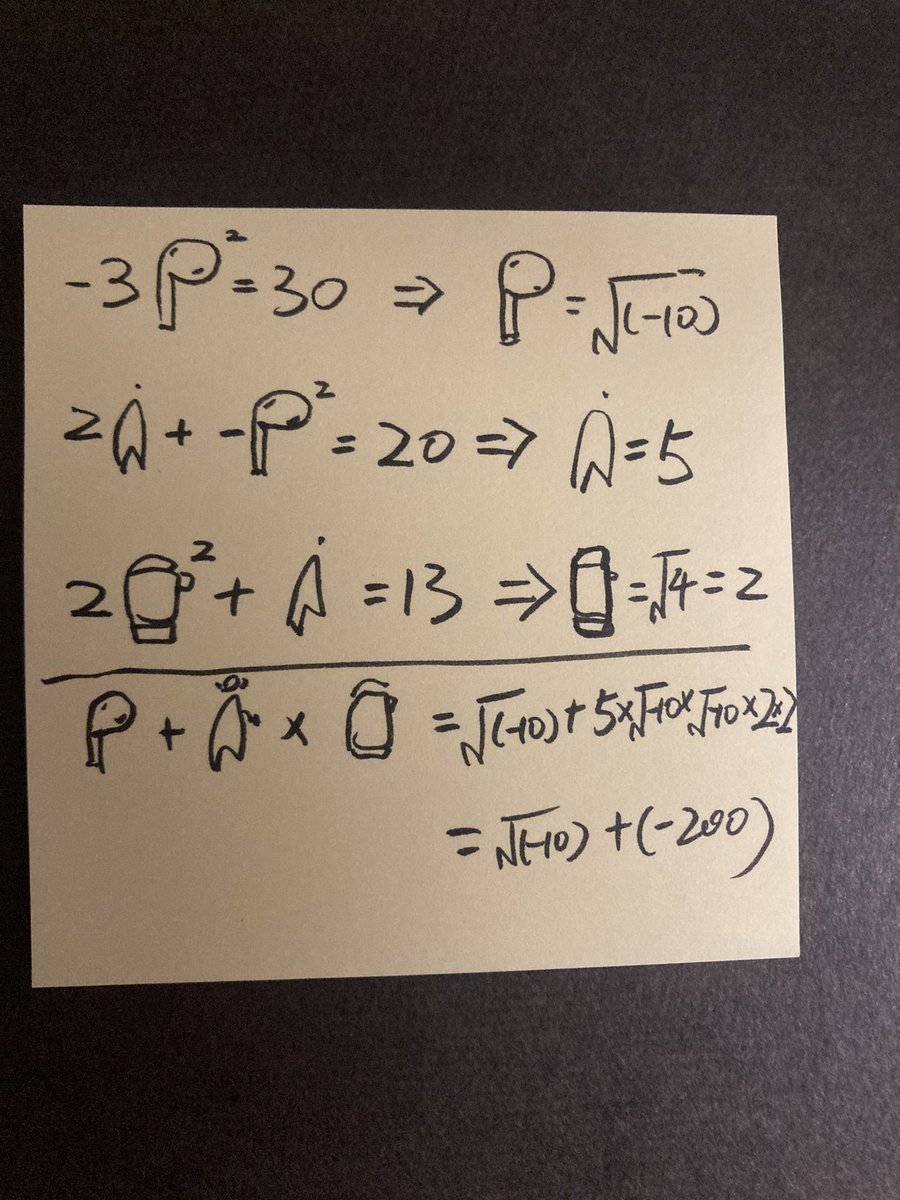 -3P² = 30 ⇒ P = √(-10)
2 + -P² = 20 ⇒ = 5
2 ² + = 13 ⇒ = √4 = 2
P + × = √(-10) + 5×√-10×√-10×2×2
= √(-10) + (-200)